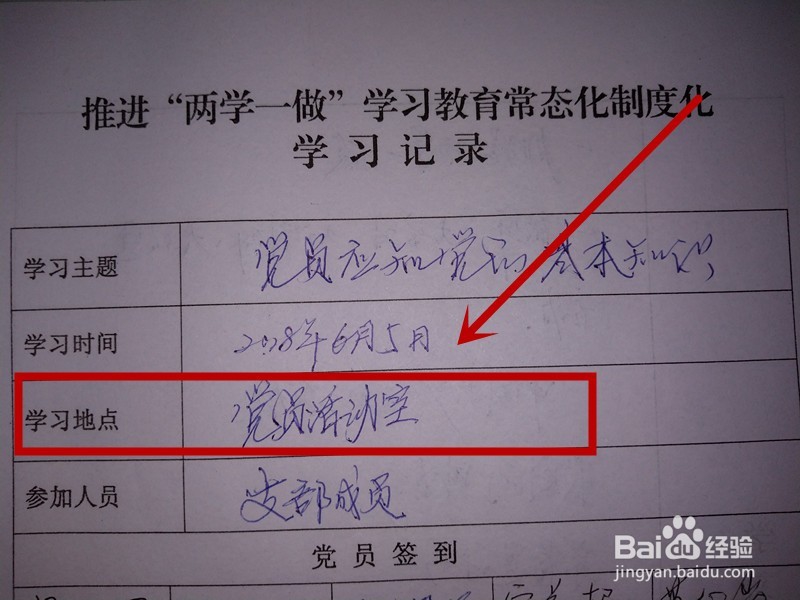 推进“两学一做”学习教育常态化制度化
学习记录
学习主题 党员应知党的基本知识
学习时间 2018年6月5日
学习地点 党员活动室
参加人员 支部成员
党员签到
Baidu经验
jingyan.baidu.com